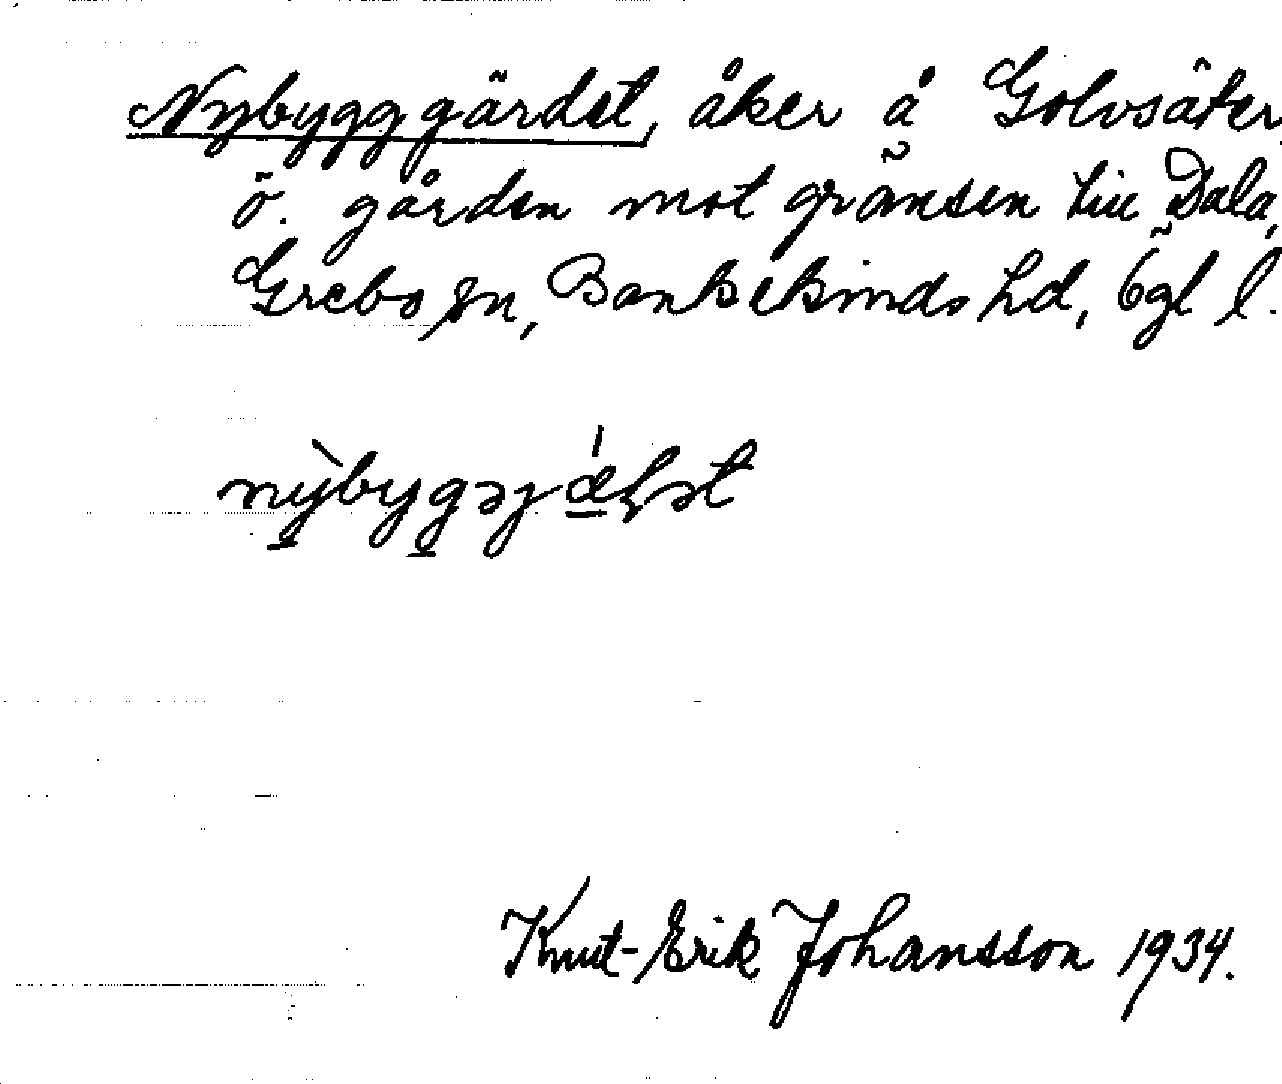 Nybyggärdet, åker å Golvsäter,
ö. gården mot gränsen till Dala,
Grebo sn, Bankekinds hd, Ögl l.
Knut-Erik Johansson 1934.